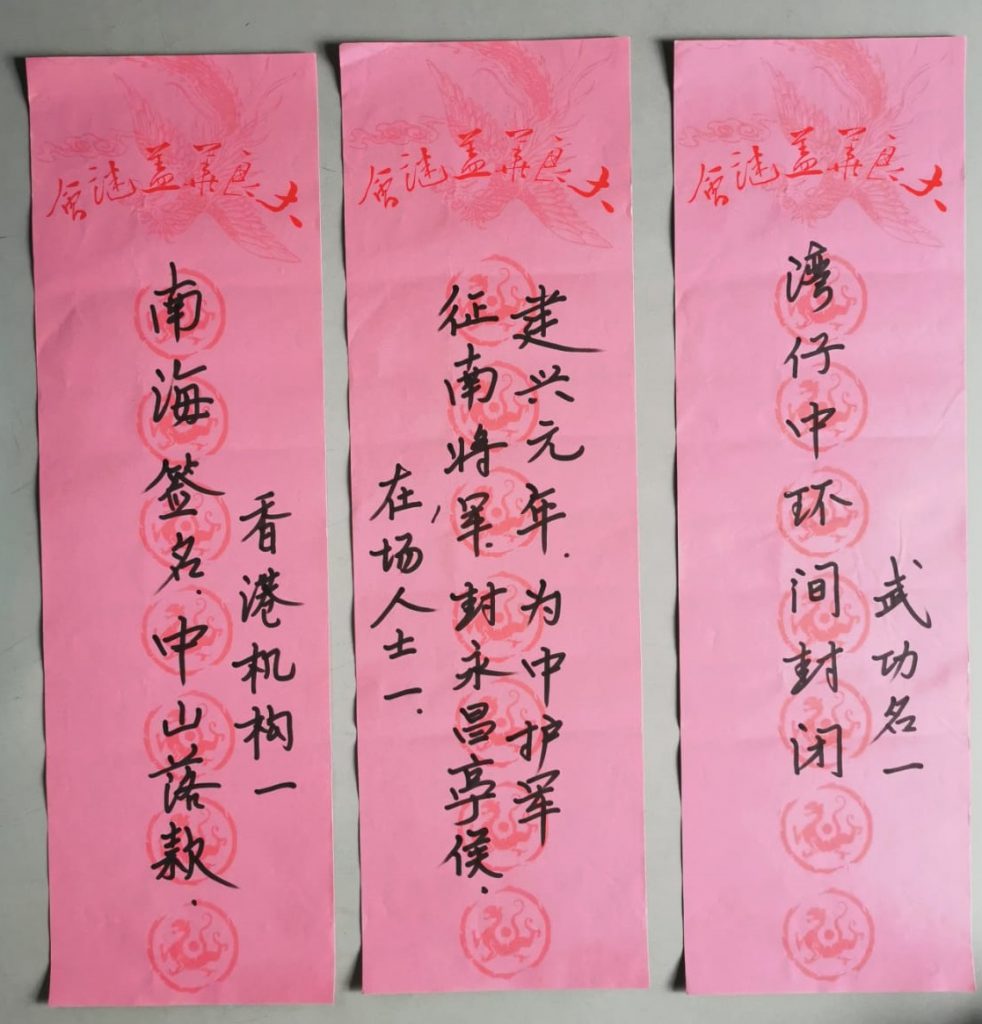 大良華盖谜會
香港机构一
南海签名.中山落款.
大良華盖谜會
建兴元年.为中护军
征南将军.封永昌亭侯.
在场人士一.
大良華盖谜會
武功名一
湾仔中环间封闭